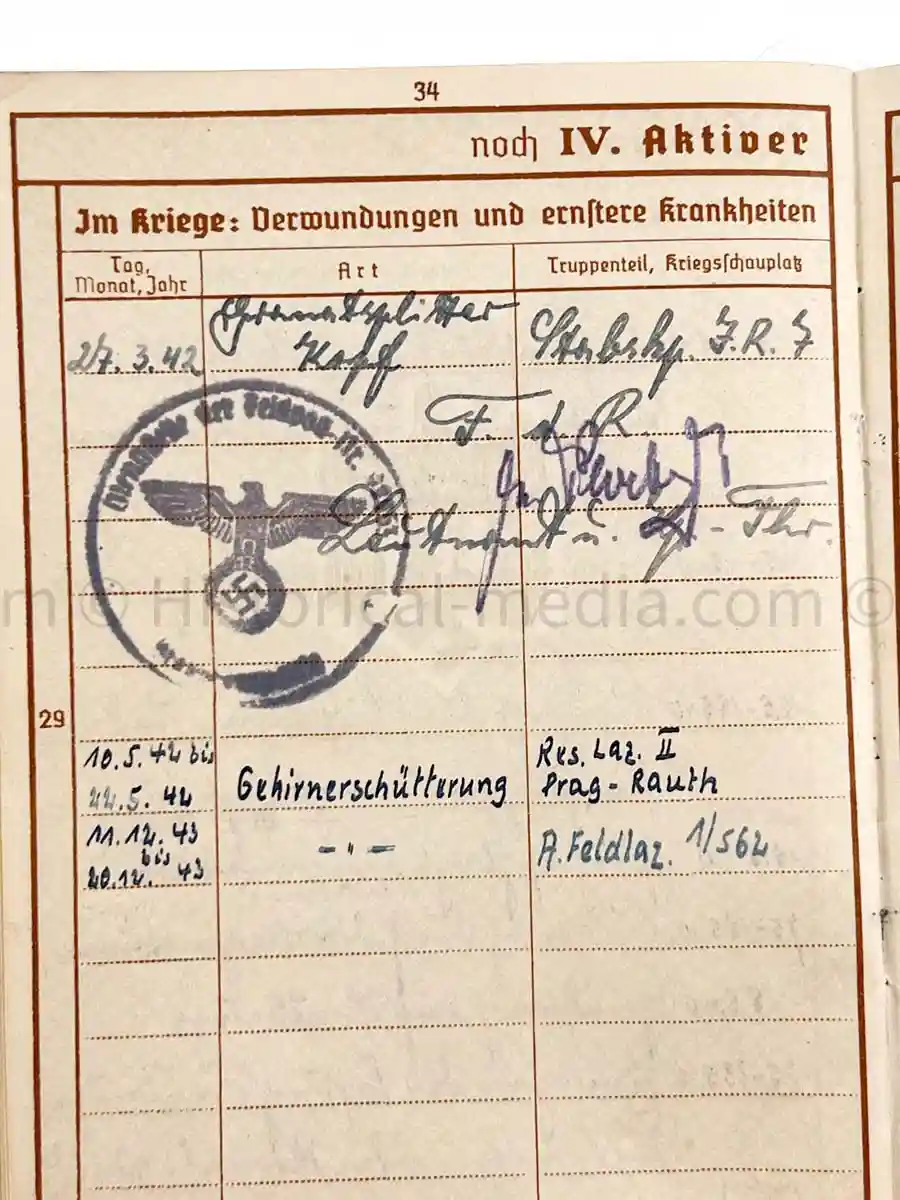 34
noch IV. Aktiver
Im Kriege: Verwundungen und ernstere Krankheiten
Tag, Monat, Jahr
Art
Truppenteil, Kriegsschauplatz
27. 3. 42
Granatsplitter
Kopf
Stabskp. I. R. 7
F. d R.
Leutnant u.
Dienststelle der Feldpost-Nr.
m © Historical-media.com ©
29
10.5. 42 bis
22.5. 42
Gehirnerschütterung
Res. Laz. II
Prag - Rauth
11.12. 43
bis
20.12. 43
- " -
A. Feldlaz. 1/562